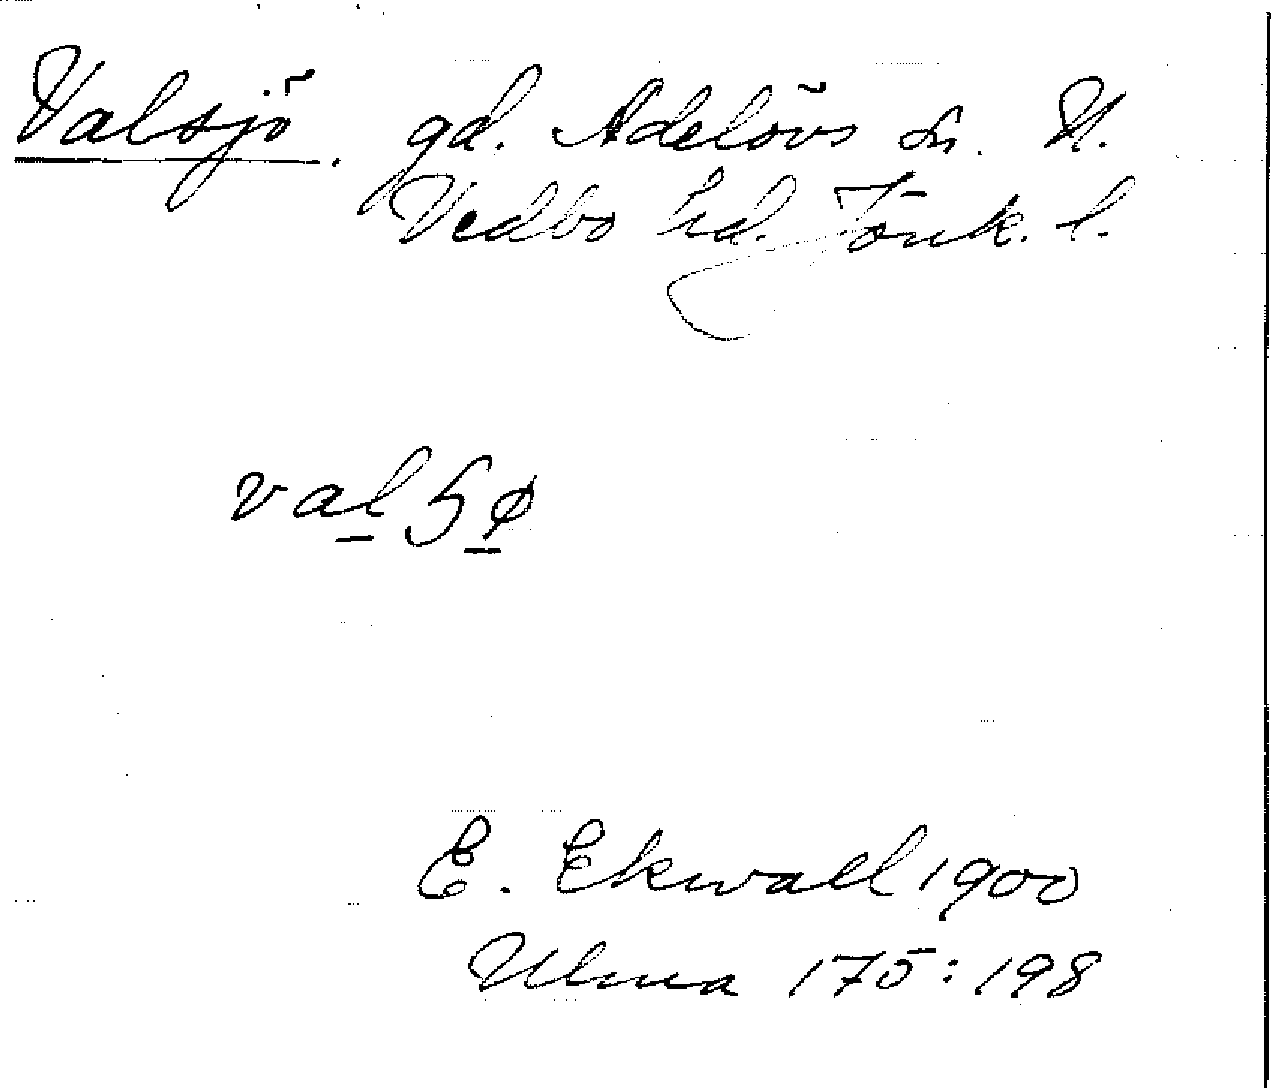 Valsjö. gd. Adelövs sn. N.
Vedbo hd. Jönk. l.
valʃø
E. Ekwall 1900
Ulma 175:198